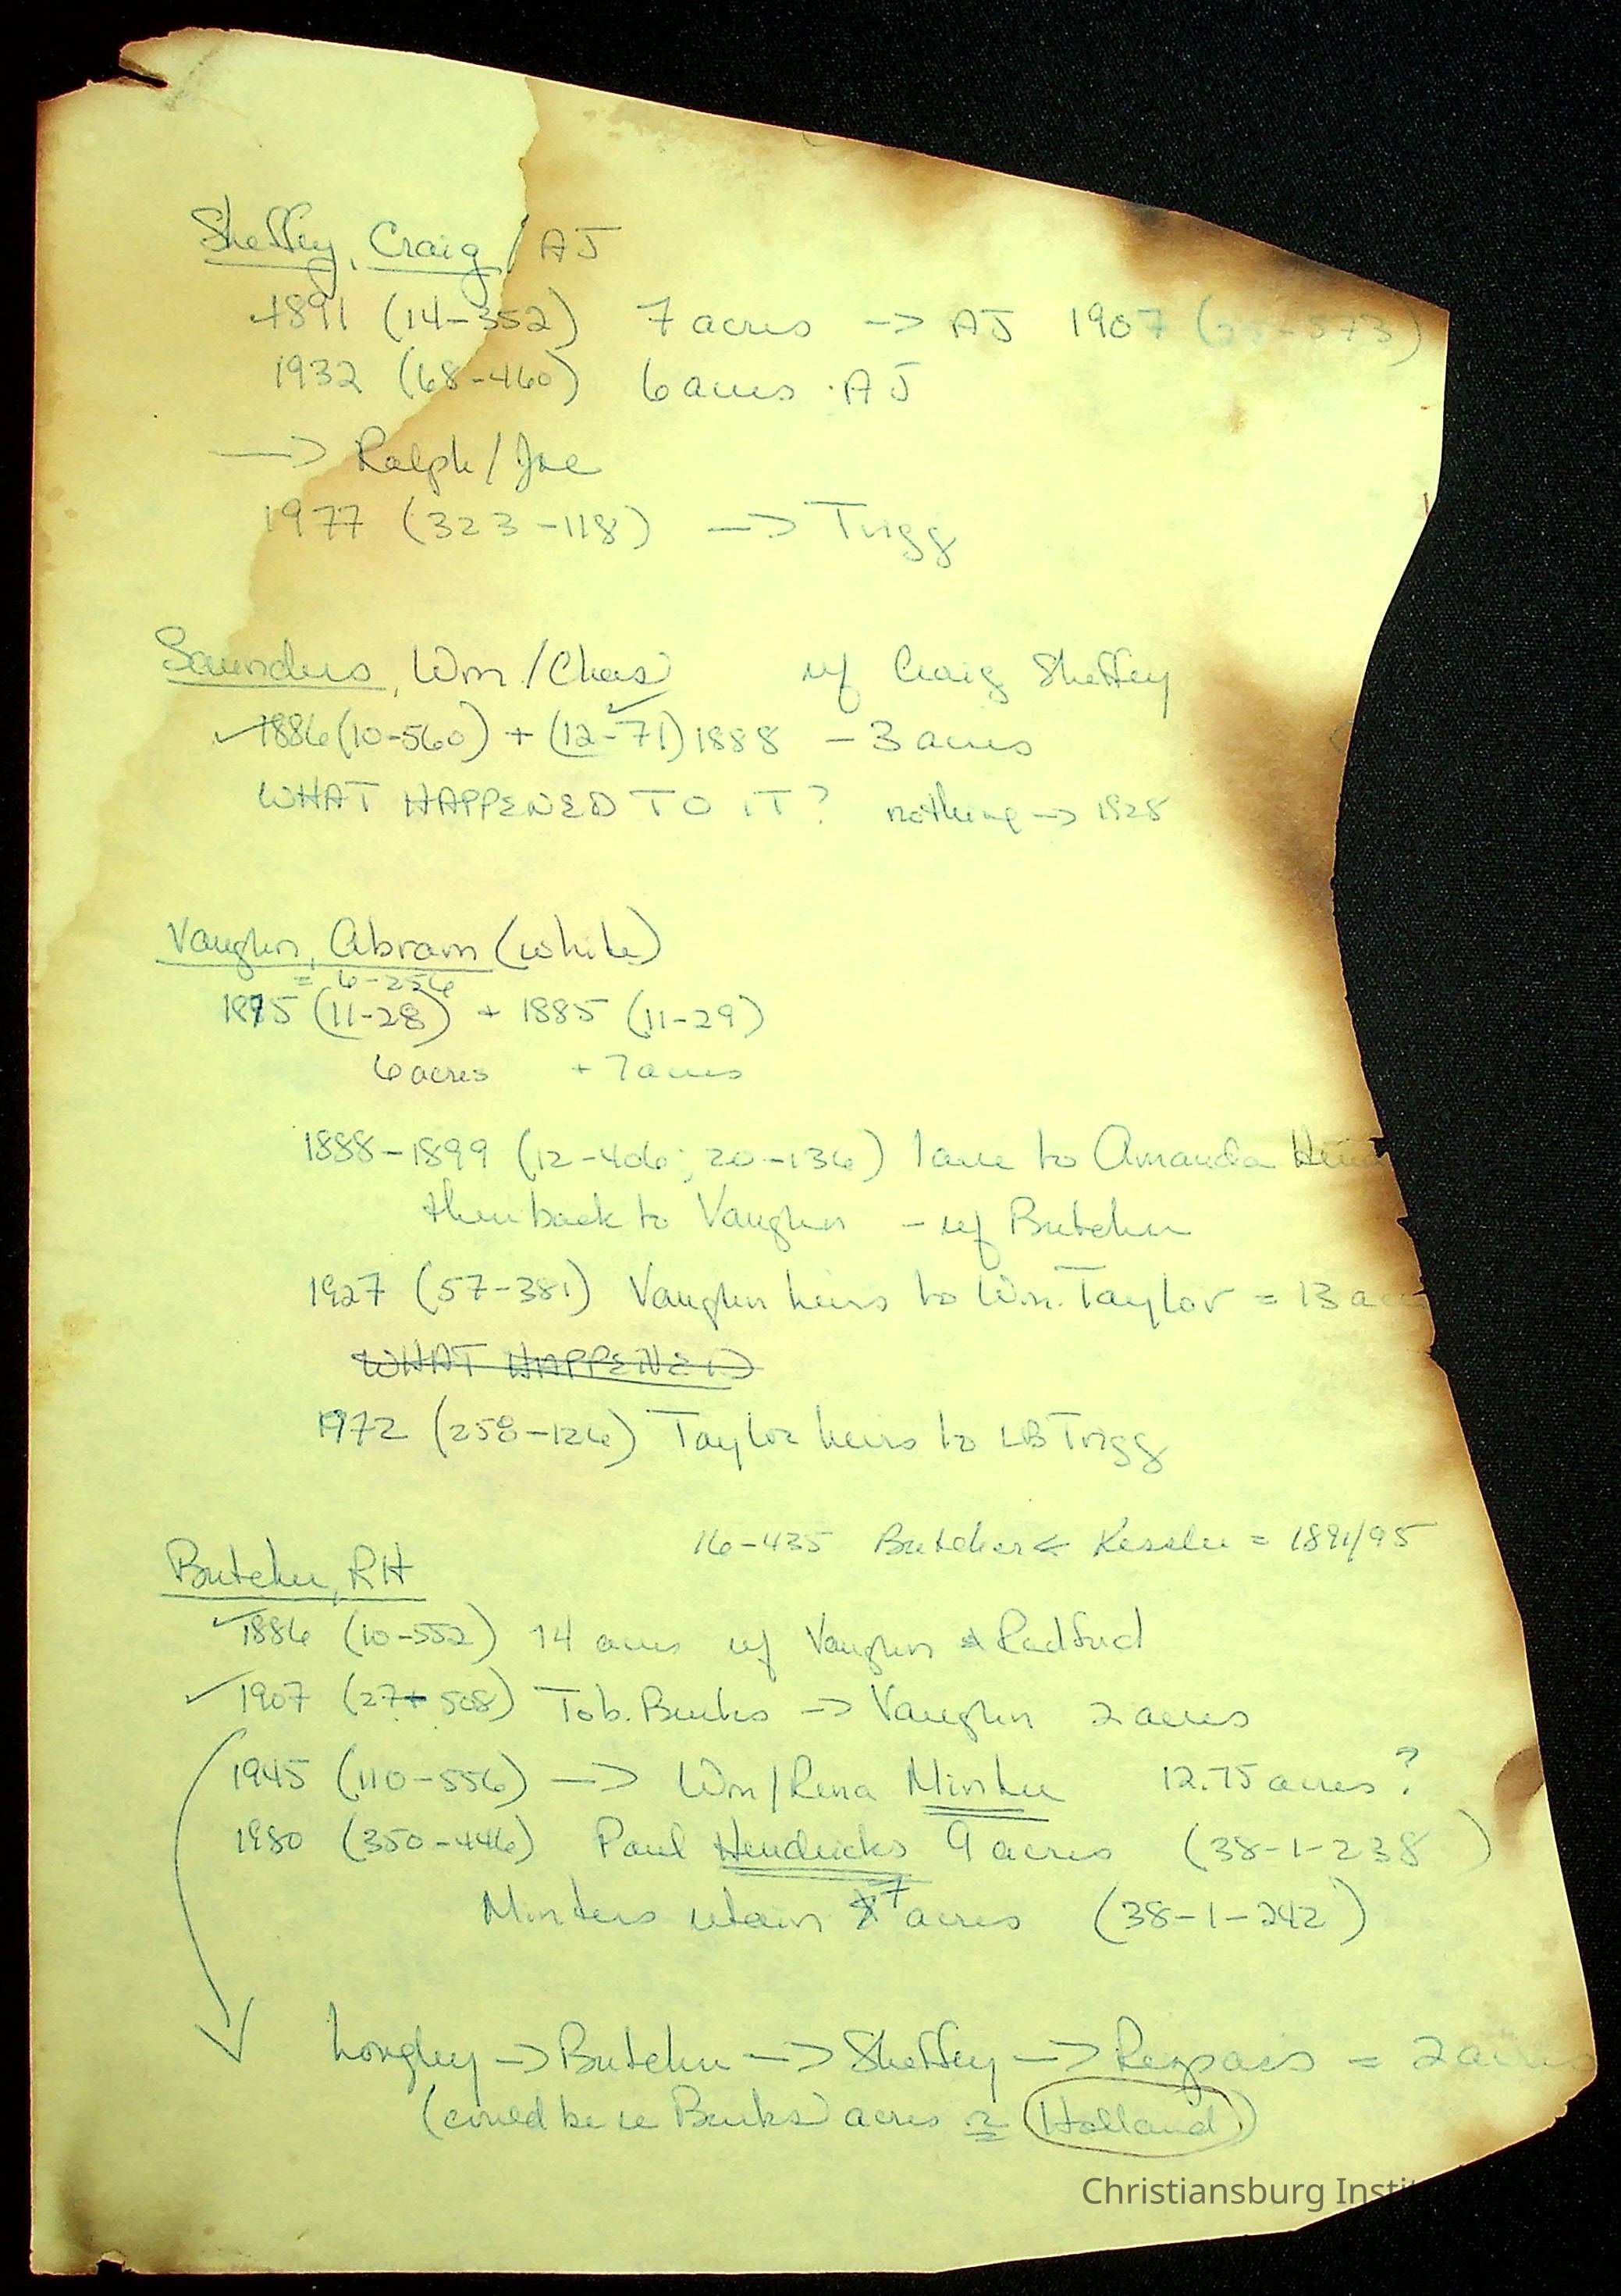 Sheffey, Craig / AJ
1891 (14-352) 7 acres -> AJ 1907 (25-573)
1932 (68-460) 6 acres · AJ
-> Ralph / Joe
1977 (323-118) -> Trigg
Saunders, Wm / Chas w/ Craig Sheffey
✓1886 (10-560) + (12-71) 1888 - 3 acres
WHAT HAPPENED TO IT? nothing -> 1928
Vaughn, Abram (white)
= 6-256
1875 (11-28) + 1885 (11-29)
6 acres + 7 acres
1888-1899 (12-406; 20-136) 1 acre to Amanda
then back to Vaughn - w/ Butcher
1927 (57-381) Vaughn heirs to Wm. Taylor = 13 acres
WHAT HAPPENED
1972 (258-126) Taylor heirs to LB Trigg
16-435 Butcher < Kessler = 1891/95
Butcher, RH
✓1886 (10-552) 14 acres w/ Vaughn & Radford
✓1907 (27-508) Tob. Burks -> Vaughn 2 acres
1945 (110-556) -> Wm / Rena Minter 12.75 acres?
1980 (350-446) Paul Hendricks 9 acres (38-1-238)
Minters retain 7 acres (38-1-242)
Longley -> Butcher -> Sheffey -> Repass = 2 acres
(could be Burks' acres = Holland)
Christiansburg Insti